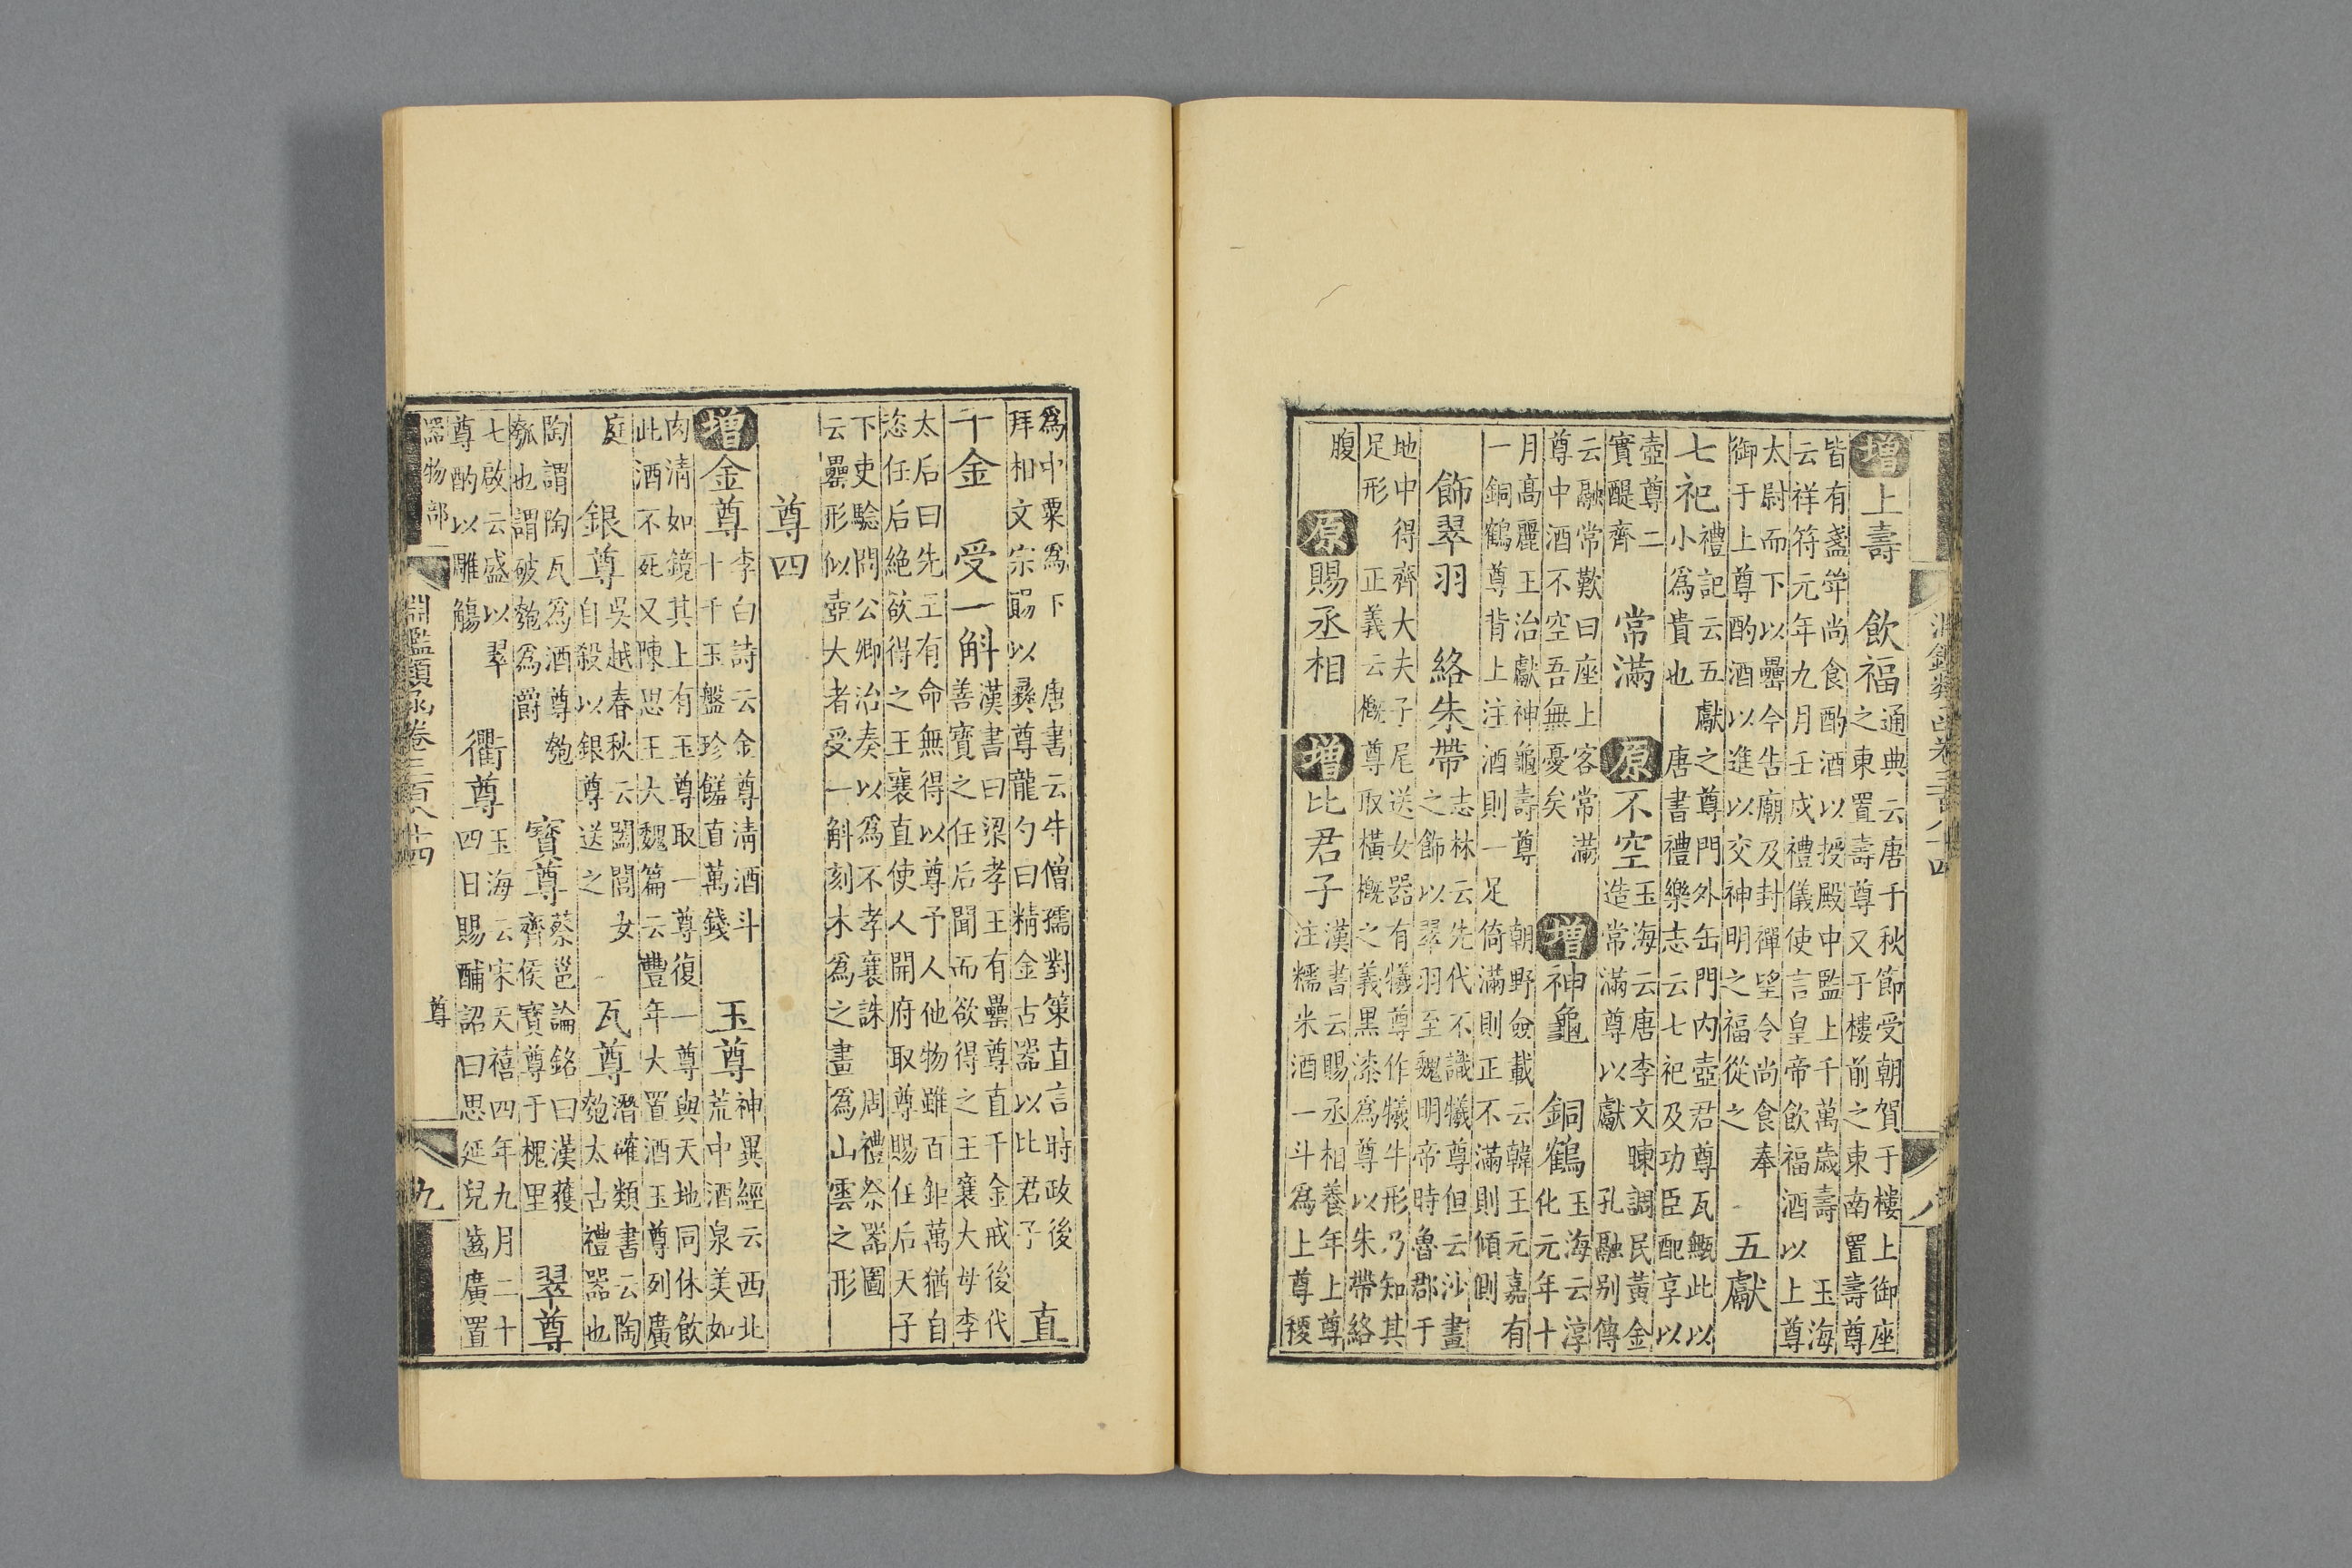 淵鑑類函卷三百八十四 八
增上壽 飲福 通典云唐千秋節受朝賀于樓上御座
之東置壽尊又于樓前之東南置壽尊
皆有盞斝尚食酌酒以授殿中監上千萬歲壽 玉海
云祥符元年九月壬戌禮儀使言皇帝飲福酒以上尊
太尉而下以罍今告廟及封禪望令尚食奉
御于上尊酌酒以進以交神明之福從之 五獻
七祀 禮記云五獻之尊門外缶門内壺君尊瓦甒此以
小爲貴也 唐書禮樂志云七祀及功臣配享以
壺尊二
實醍齊 常滿 原不空 玉海云唐李文暕調民黃金
造常滿尊以獻 孔融别傳
云融常歎曰座上客常滿
尊中酒不空吾無憂矣 增神龜 銅鶴 玉海云淳
化元年十
月高麗王治獻神龜壽尊 朝野僉載云韓王元嘉有
一銅鶴尊背上注酒則一足倚滿則正不滿則傾側
飾翠羽 絡朱帶 志林云先代不識犧尊但云沙畫
之飾以翠羽至魏明帝時魯郡于
地中得齊大夫子尾送女器有犧尊作犧牛形乃知其
足形 正義云概尊取橫概之義黑漆爲尊以朱帶絡
腹 原賜丞相 增比君子 漢書云賜丞相養年上尊
注糯米酒一斗爲上尊稷
爲中粟爲下 唐書云牛僧孺對策直言時政後
拜相文宗賜以彝尊龍勺曰精金古器以比君子 直
千金 受一斛 漢書曰梁孝王有罍尊直千金戒後代
善寶之任后聞而欲得之王襄大母李
太后曰先王有命無得以尊予人他物雖百鉅萬猶自
恣任后絶欲得之王襄直使人開府取尊賜任后天子
下吏驗問公卿治奏以爲不孝襄誅 周禮祭器圖
云罍形似壺大者受一斛刻木爲之畫爲山雲之形
尊四
增金尊 李白詩云金尊清酒斗
十千玉盤珍饈直萬錢 玉尊 神異經云西北
荒中酒泉美如
肉清如鏡其上有玉尊取一尊復一尊與天地同休飲
此酒不死又陳思王大魏篇云豐年大置酒玉尊列廣
庭 銀尊 吳越春秋云闔閭女
自殺以銀尊送之 瓦尊 潛確類書云陶
匏太古禮器也
陶謂陶瓦爲酒尊匏
瓠也謂破匏爲爵 寶尊 蔡邕論銘曰漢獲
齊侯寶尊于槐里 翠尊
七啟云盛以翠
尊酌以雕觴 衢尊 玉海云宋天禧四年九月二十
四日賜酺詔曰思延兒齒廣置
器物部 淵鑑類函卷三百八十四 尊 九